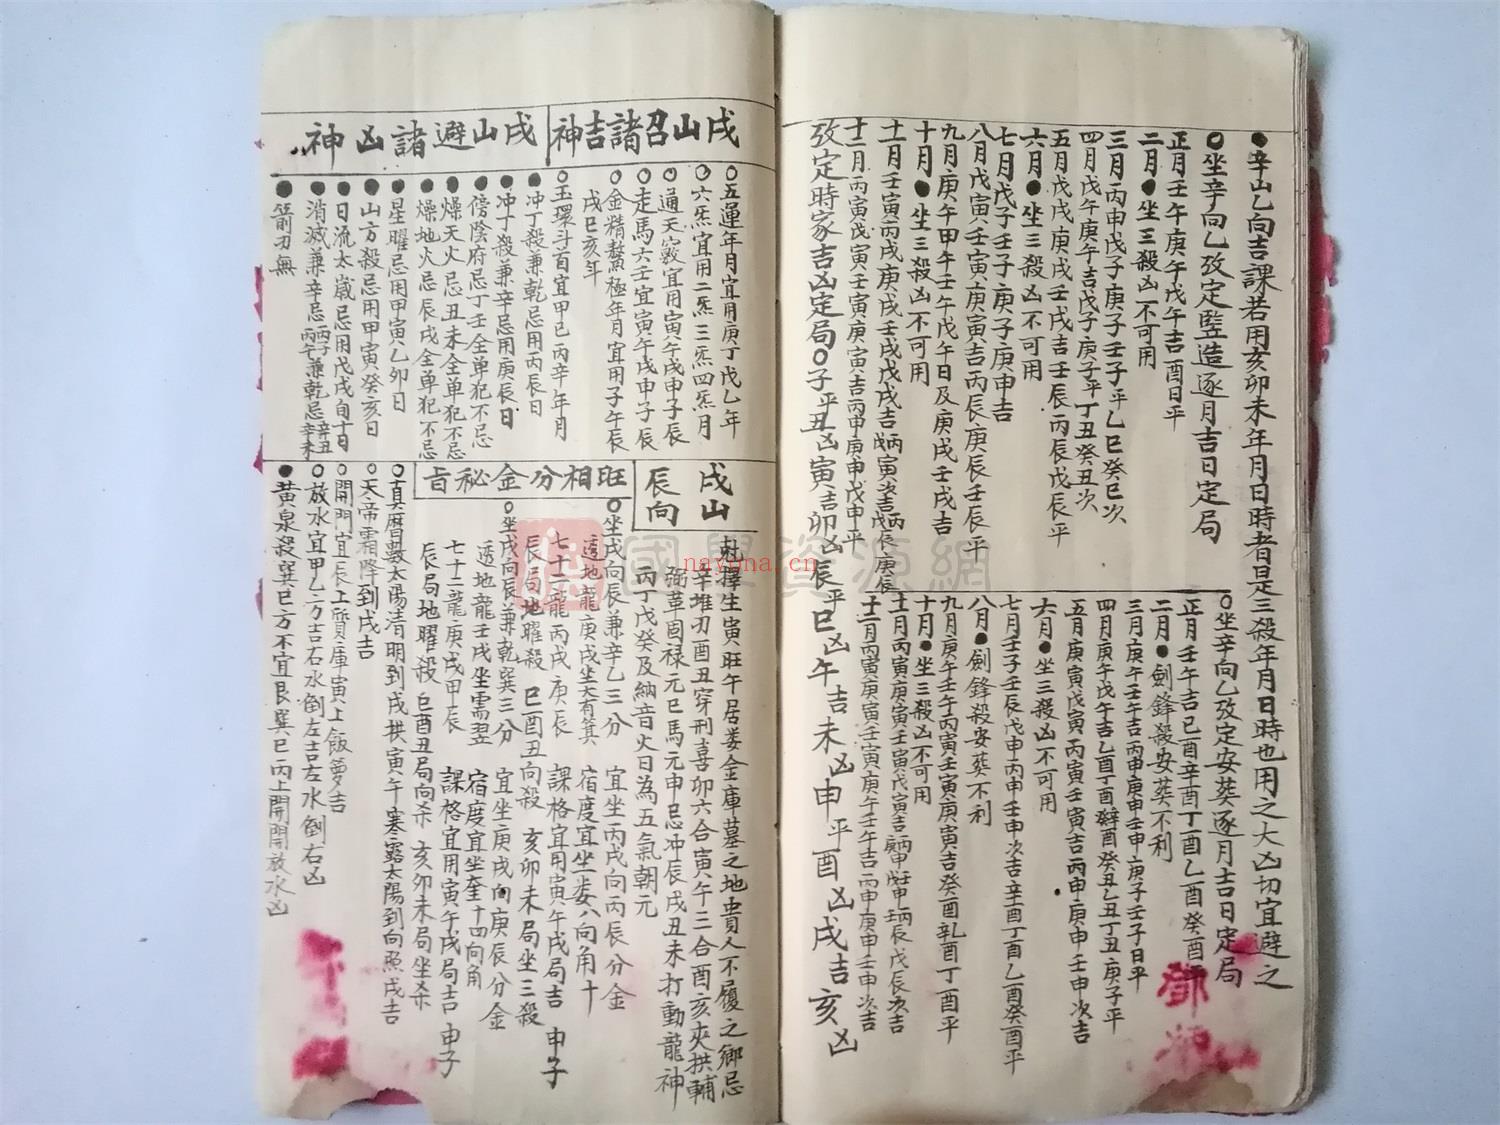 ●辛山乙向吉課若用亥卯未年月日時者是三殺年月日時也用之大凶切宜避之
○坐辛向乙攷定竪造逐月吉日定局
正月壬午庚午戊午吉酉日平
二月●坐三殺凶不可用
三月丙申戊子庚子壬子平乙巳癸巳次
四月戊午庚午吉戊子庚子平丁丑癸丑次
五月戊戌庚戌壬戌吉壬辰丙辰戊辰平
六月●坐三殺凶不可用
七月戊子壬子庚子庚申吉
八月戊寅壬寅庚寅吉丙辰庚辰壬辰平
九月庚午甲午壬午戊午日及庚戌壬戌吉
十月●坐三殺凶不可用
十一月壬寅丙戌庚戌壬戌戊戌吉
十二月丙寅戊寅壬寅庚寅吉丙申庚申戊申平
○坐辛向乙攷定安葬逐月吉日定局
正月壬午吉己酉辛酉丁酉乙酉癸酉平
二月●劍鋒殺安葬不利
三月庚午壬午吉丙申庚申壬申庚子壬子日平
四月庚午戊午吉乙酉丁酉辭酉癸丑乙丑丁丑庚子平
五月庚寅戊寅丙寅壬寅吉丙申庚申壬申次吉
六月●坐三殺凶不可用
七月壬子壬辰戊申丙申壬申次吉辛酉丁酉乙酉癸酉平
八月●劍鋒殺安葬不利
九月庚午壬午丙寅壬寅庚寅吉癸酉辛酉丁酉平
十月●坐三殺凶不可用
十一月丙寅庚寅壬寅戊寅吉
十二月丙寅庚寅壬寅庚午壬午吉丙申庚申壬申次吉
攷定時家吉凶定局○子平丑凶寅吉卯凶辰平巳凶午吉未凶申平酉凶戌吉亥凶
戌山召諸吉神
○五運年月宜用庚丁戊乙年
○六炁宜用二炁三炁四炁月
○通天竅宜用寅午戌申子辰
○走馬六壬宜寅午戌申子辰
○金精鰲極年月宜用子午辰
戌巳亥年
○玉環斗首宜甲己丙辛年月
戌山避諸凶神
●冲丁殺兼乾忌用丙辰日
●冲丁殺兼辛忌用庚辰日
●傍陰府忌丁壬全单犯不忌
●燥天火忌丑未全单犯不忌
●燥地火忌辰戌全单犯不忌
●星曜忌用甲寅乙卯日
●山方殺忌用甲寅癸亥日
●日流太歲忌用戊戌旬十日
●消滅兼辛忌丙子丙午兼乾忌辛丑辛未
●箭刃無
戌山
辰向
尅擇生寅旺午居娄金庫墓之地貴人不履之鄉忌
辛堆刃酉丑穿刑喜卯六合寅午三合酉亥夾拱輔
弼革固禄元巳馬元申忌冲辰戌丑未打動龍神
丙丁戊癸及納音火日為五氣朝元
旺相分金秘旨
○坐戌向辰兼辛乙三分 宜坐丙戌向丙辰分金
透地龍庚戌坐大有箕 宿度宜坐娄八向角十
七十二龍丙戌庚辰 課格宜用寅午戌局吉 申子
辰局地曜殺 巳酉丑向殺 亥卯未局坐三殺
○坐戌向辰兼乾巽三分 宜坐庚戌向庚辰分金
透地龍壬戌坐需翌 宿度宜坐奎十四向角
七十二龍庚戌甲辰 課格宜用寅午戌局吉 申子
辰局地曜殺 巳酉丑局向杀 亥卯未局坐杀
○真曆數太陽清明到戌拱寅午 寒露太陽到向照戌吉
○天帝霜降到戌吉
○開門宜辰上質庫寅上飯箩吉
○放水宜甲乙方吉右水倒左吉左水倒右凶
●黄泉殺巽巳方不宜艮巽巳丙上開開放水凶
國學資源網
nayona.cn